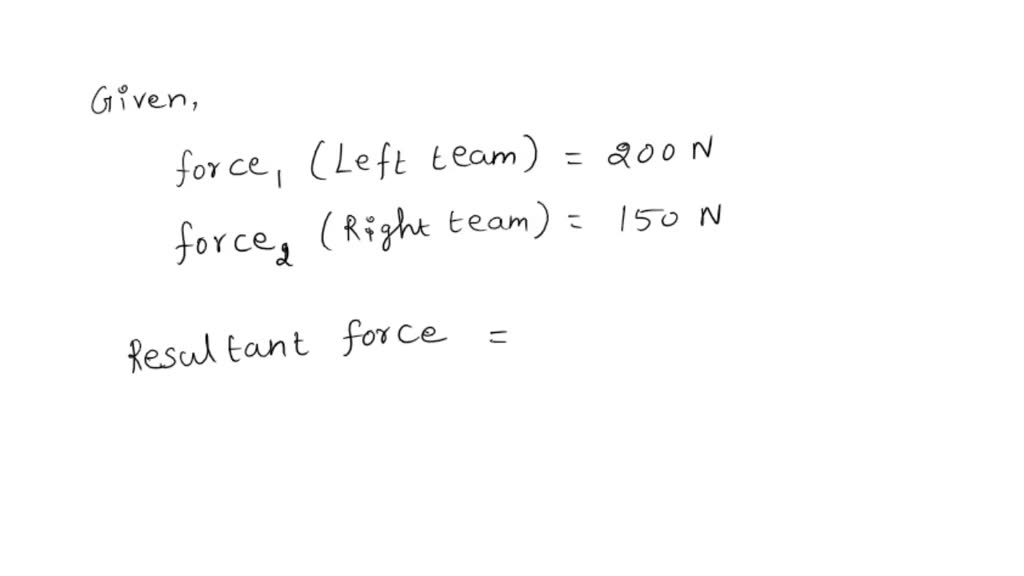 Given,
force₁ (Left team) = 200 N
force₂ (Right team) = 150 N
Resultant force =